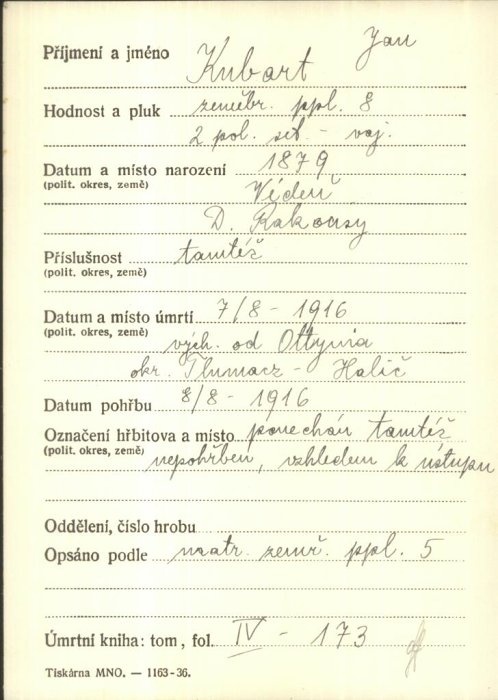 Příjmení a jméno Kubart Jan
Hodnost a pluk zeměbr. ppl. 8
2 pol. set. - voj.
Datum a místo narození 1879
(polit. okres, země) Vídeň
D. Rakousy
Příslušnost tamtéž
(polit. okres, země)
Datum a místo úmrtí 7/8 - 1916
(polit. okres, země) vých. od Ottynia
okr. Tlumacz - Halič
Datum pohřbu 8/8 - 1916
Označení hřbitova a místo ponechán tamtéž
(polit. okres, země) nepohřben, vzhledem k ústupu
Oddělení, číslo hrobu
Opsáno podle matr. zemř. ppl. 5
Úmrtní kniha: tom, fol. IV - 173
Tiskárna MNO. — 1163-36.